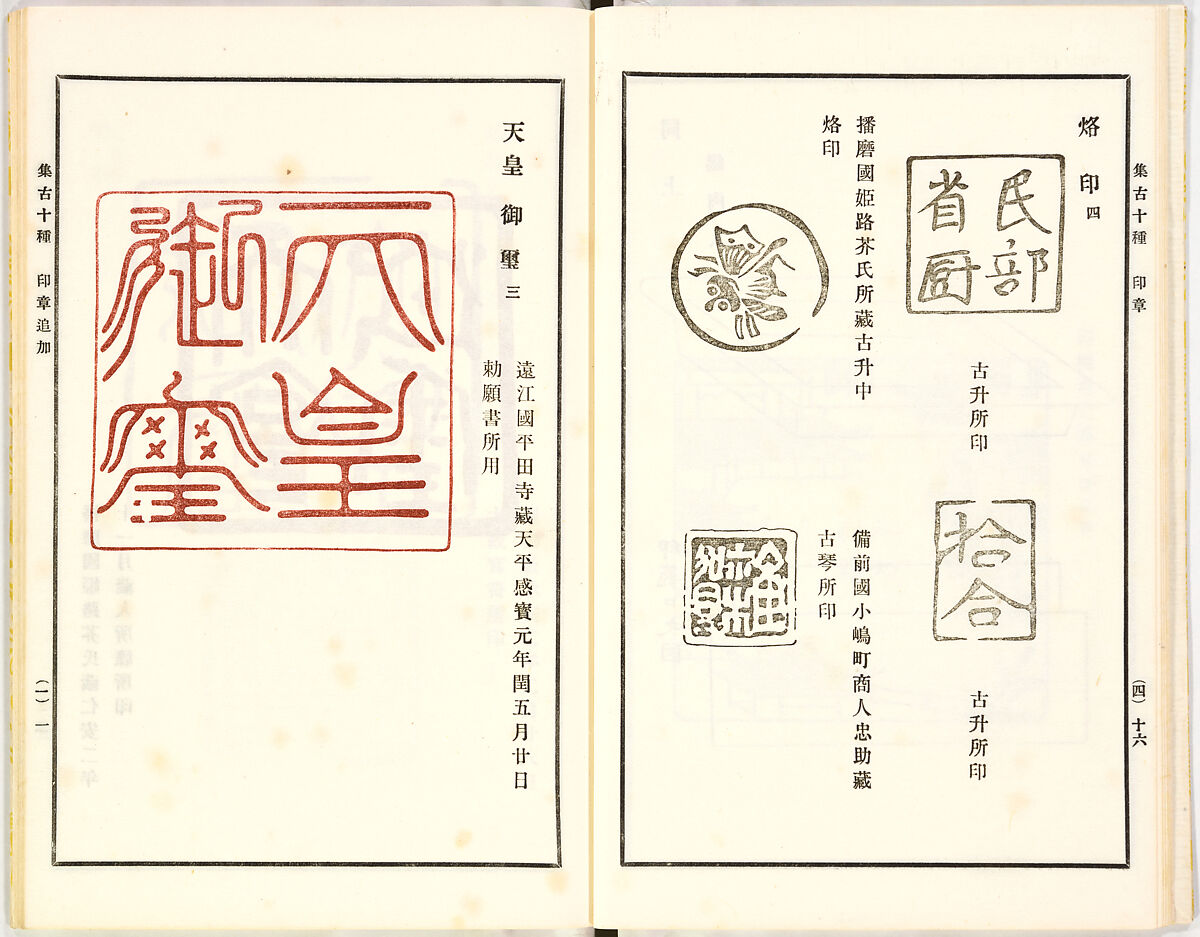 集古十種 印章
(四) 十六
烙印 四
民部
省厨
古升所印
拾合
古升所印
播磨國姫路芥氏所藏古升中
烙印
備前國小嶋町商人忠助藏
古琴所印
天皇御璽 三
遠江國平田寺藏天平感寶元年閏五月廿日
勅願書所用
天皇
御璽
集古十種 印章追加
(一) 一